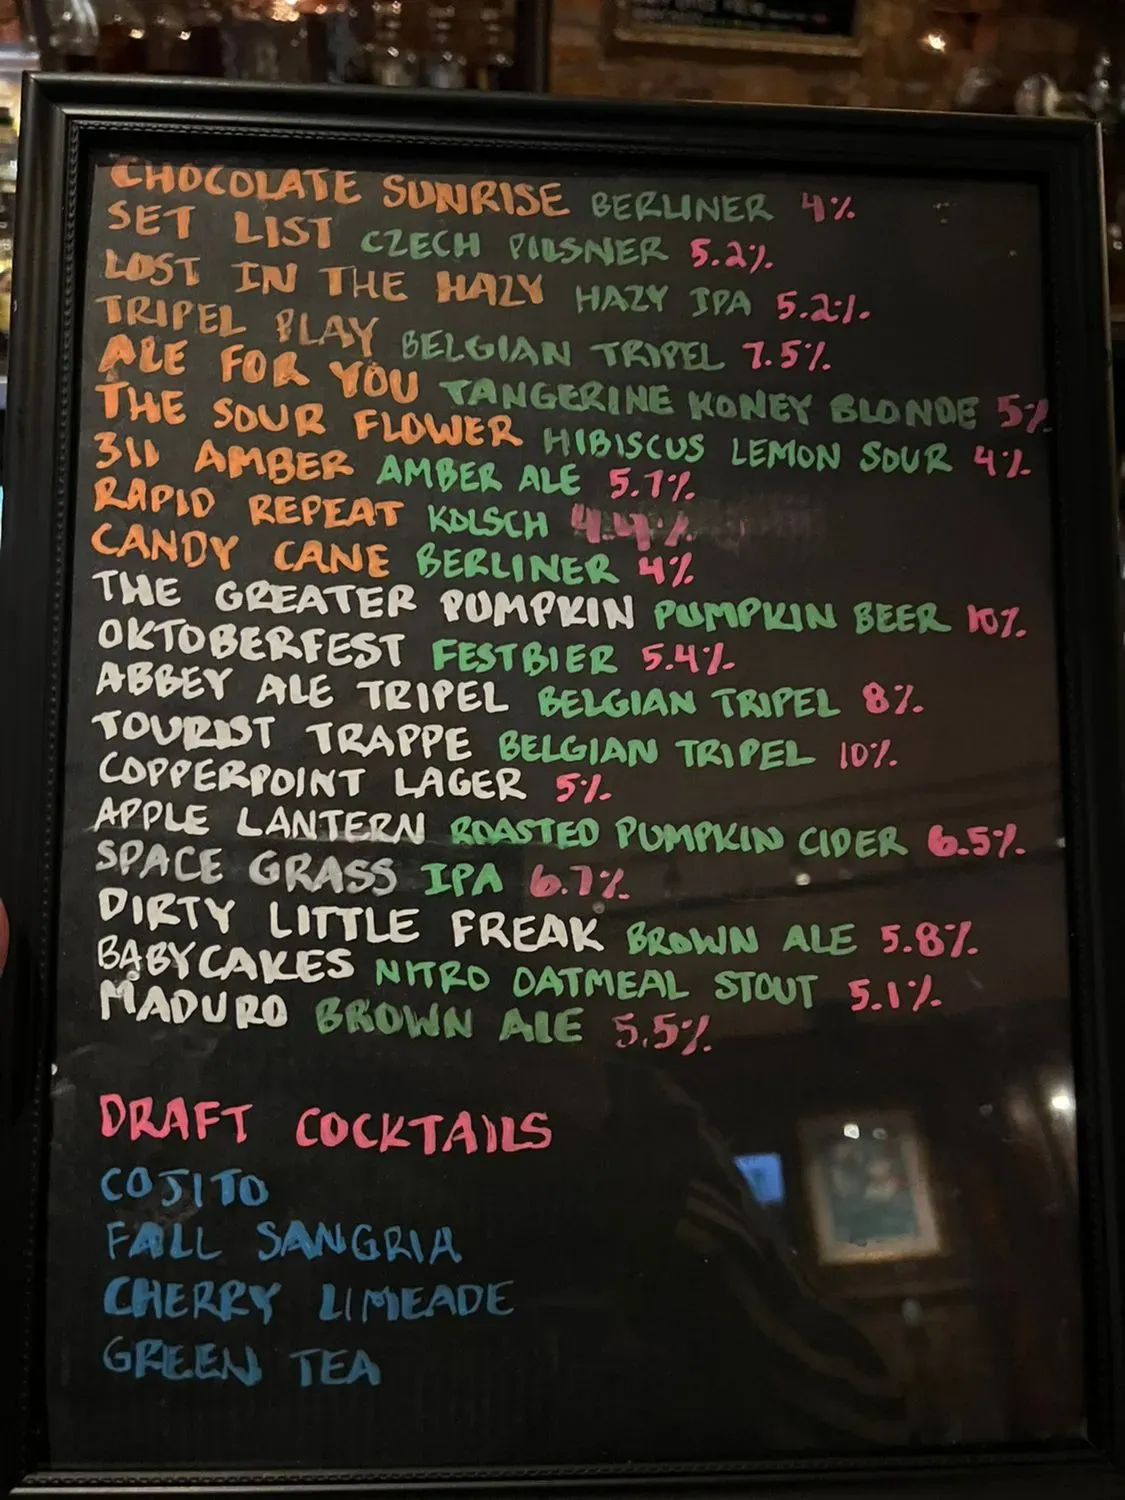 CHOCOLATE SUNRISE BERLINER 4%
SET LIST CZECH PILSNER 5.2%
LOST IN THE HAZY HAZY IPA 5.2%
TRIPEL PLAY BELGIAN TRIPEL 7.5%
ALE FOR YOU TANGERINE HONEY BLONDE 5%
THE SOUR FLOWER HIBISCUS LEMON SOUR 4%
311 AMBER AMBER ALE 5.7%
RAPID REPEAT KOLSCH 4.4%
CANDY CANE BERLINER 4%
THE GREATER PUMPKIN PUMPKIN BEER 10%
OKTOBERFEST FESTBIER 5.4%
ABBEY ALE TRIPEL BELGIAN TRIPEL 8%
TOURIST TRAPPE BELGIAN TRIPEL 10%
COPPERPOINT LAGER 5%
APPLE LANTERN ROASTED PUMPKIN CIDER 6.5%
SPACE GRASS IPA 6.7%
DIRTY LITTLE FREAK BROWN ALE 5.8%
BABYCAKES NITRO OATMEAL STOUT 5.1%
MADURO BROWN ALE 5.5%
DRAFT COCKTAILS
COJITO
FALL SANGRIA
CHERRY LIMEADE
GREEN TEA